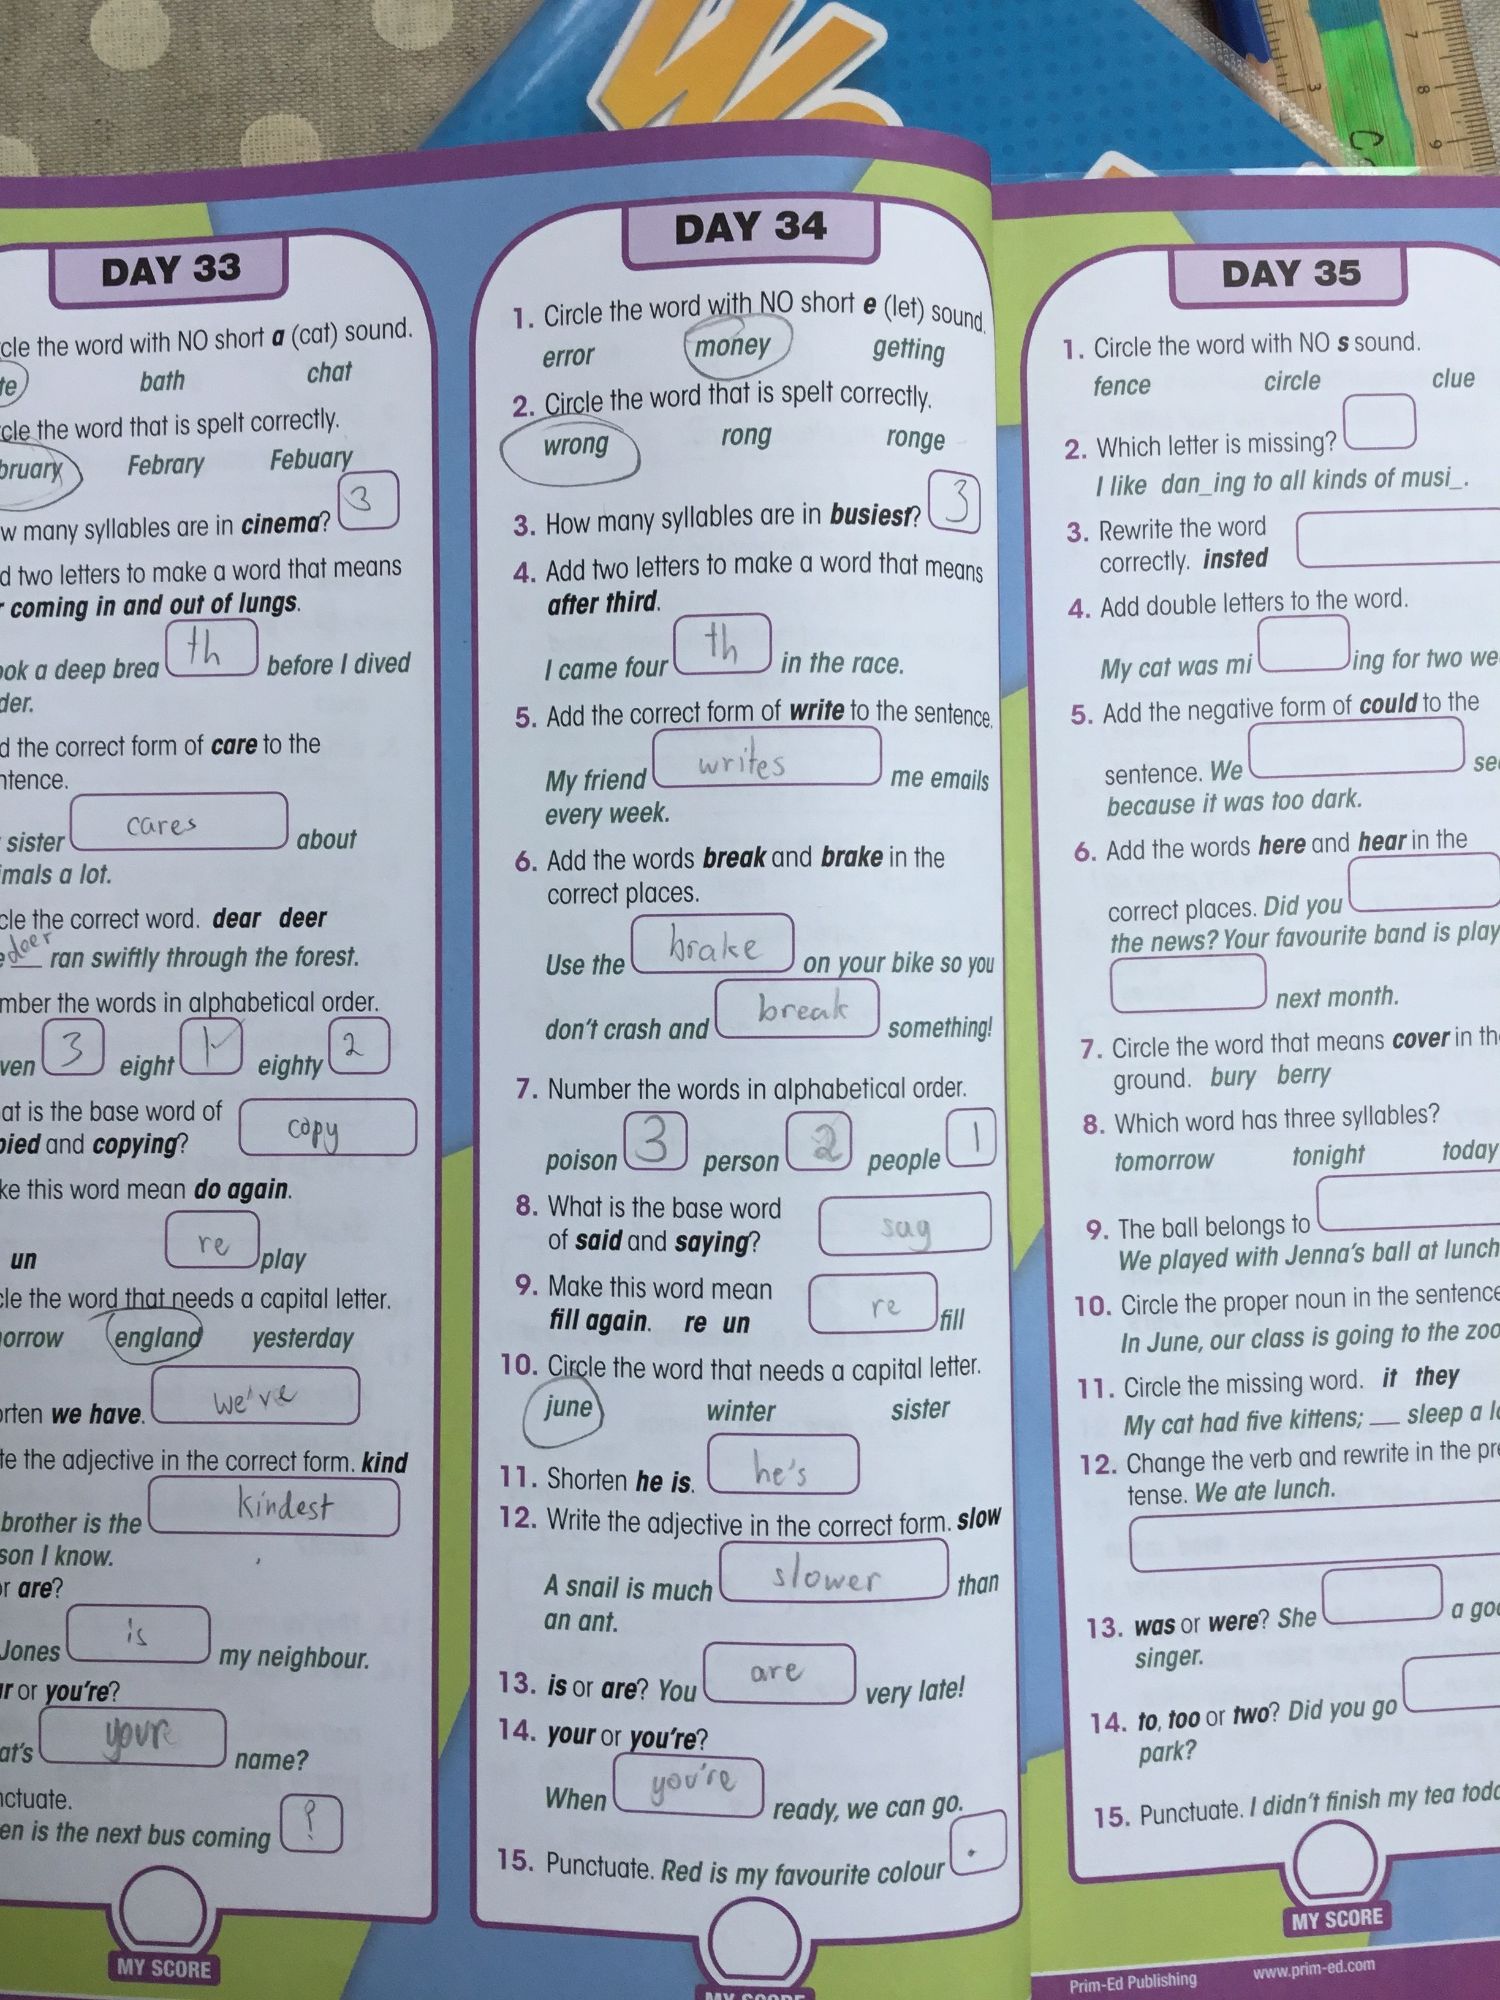 DAY 33
cle the word with NO short a (cat) sound.
te bath chat
cle the word that is spelt correctly.
bruary Febrary Febuary
w many syllables are in cinema? 3
d two letters to make a word that means
r coming in and out of lungs.
ook a deep brea th before I dived
der.
d the correct form of care to the
ntence.
sister cares about
imals a lot.
cle the correct word. dear deer
e deer ran swiftly through the forest.
mber the words in alphabetical order.
ven 3 eight 1 eighty 2
at is the base word of
pied and copying? copy
ke this word mean do again.
un re play
cle the word that needs a capital letter.
orrow england yesterday
orten we have. we've
te the adjective in the correct form. kind
brother is the kindest
son I know.
or are?
Jones is my neighbour.
ur or you're?
at's your name?
nctuate.
en is the next bus coming ?
MY SCORE
DAY 34
1. Circle the word with NO short e (let) sound.
error money getting
2. Circle the word that is spelt correctly.
wrong rong ronge
3. How many syllables are in busiest? 3
4. Add two letters to make a word that means
after third.
I came four th in the race.
5. Add the correct form of write to the sentence.
My friend writes me emails
every week.
6. Add the words break and brake in the
correct places.
Use the brake on your bike so you
don't crash and break something!
7. Number the words in alphabetical order.
poison 3 person 2 people 1
8. What is the base word
of said and saying? say
9. Make this word mean
fill again. re un re fill
10. Circle the word that needs a capital letter.
june winter sister
11. Shorten he is. he's
12. Write the adjective in the correct form. slow
A snail is much slower than
an ant.
13. is or are? You are very late!
14. your or you're?
When you're ready, we can go.
15. Punctuate. Red is my favourite colour .
MY SCORE
DAY 35
1. Circle the word with NO s sound.
fence circle clue
2. Which letter is missing?
I like dan_ing to all kinds of musi_.
3. Rewrite the word
correctly. insted
4. Add double letters to the word.
My cat was mi ing for two we
5. Add the negative form of could to the
sentence. We se
because it was too dark.
6. Add the words here and hear in the
correct places. Did you
the news? Your favourite band is play
next month.
7. Circle the word that means cover in th
ground. bury berry
8. Which word has three syllables?
tomorrow tonight today
9. The ball belongs to
We played with Jenna's ball at lunch
10. Circle the proper noun in the sentence
In June, our class is going to the zoo
11. Circle the missing word. it they
My cat had five kittens; __ sleep a lo
12. Change the verb and rewrite in the pre
tense. We ate lunch.
13. was or were? She a goo
singer.
14. to, too or two? Did you go
park?
15. Punctuate. I didn't finish my tea toda
MY SCORE
Prim-Ed Publishing www.prim-ed.com
3 7 8 9